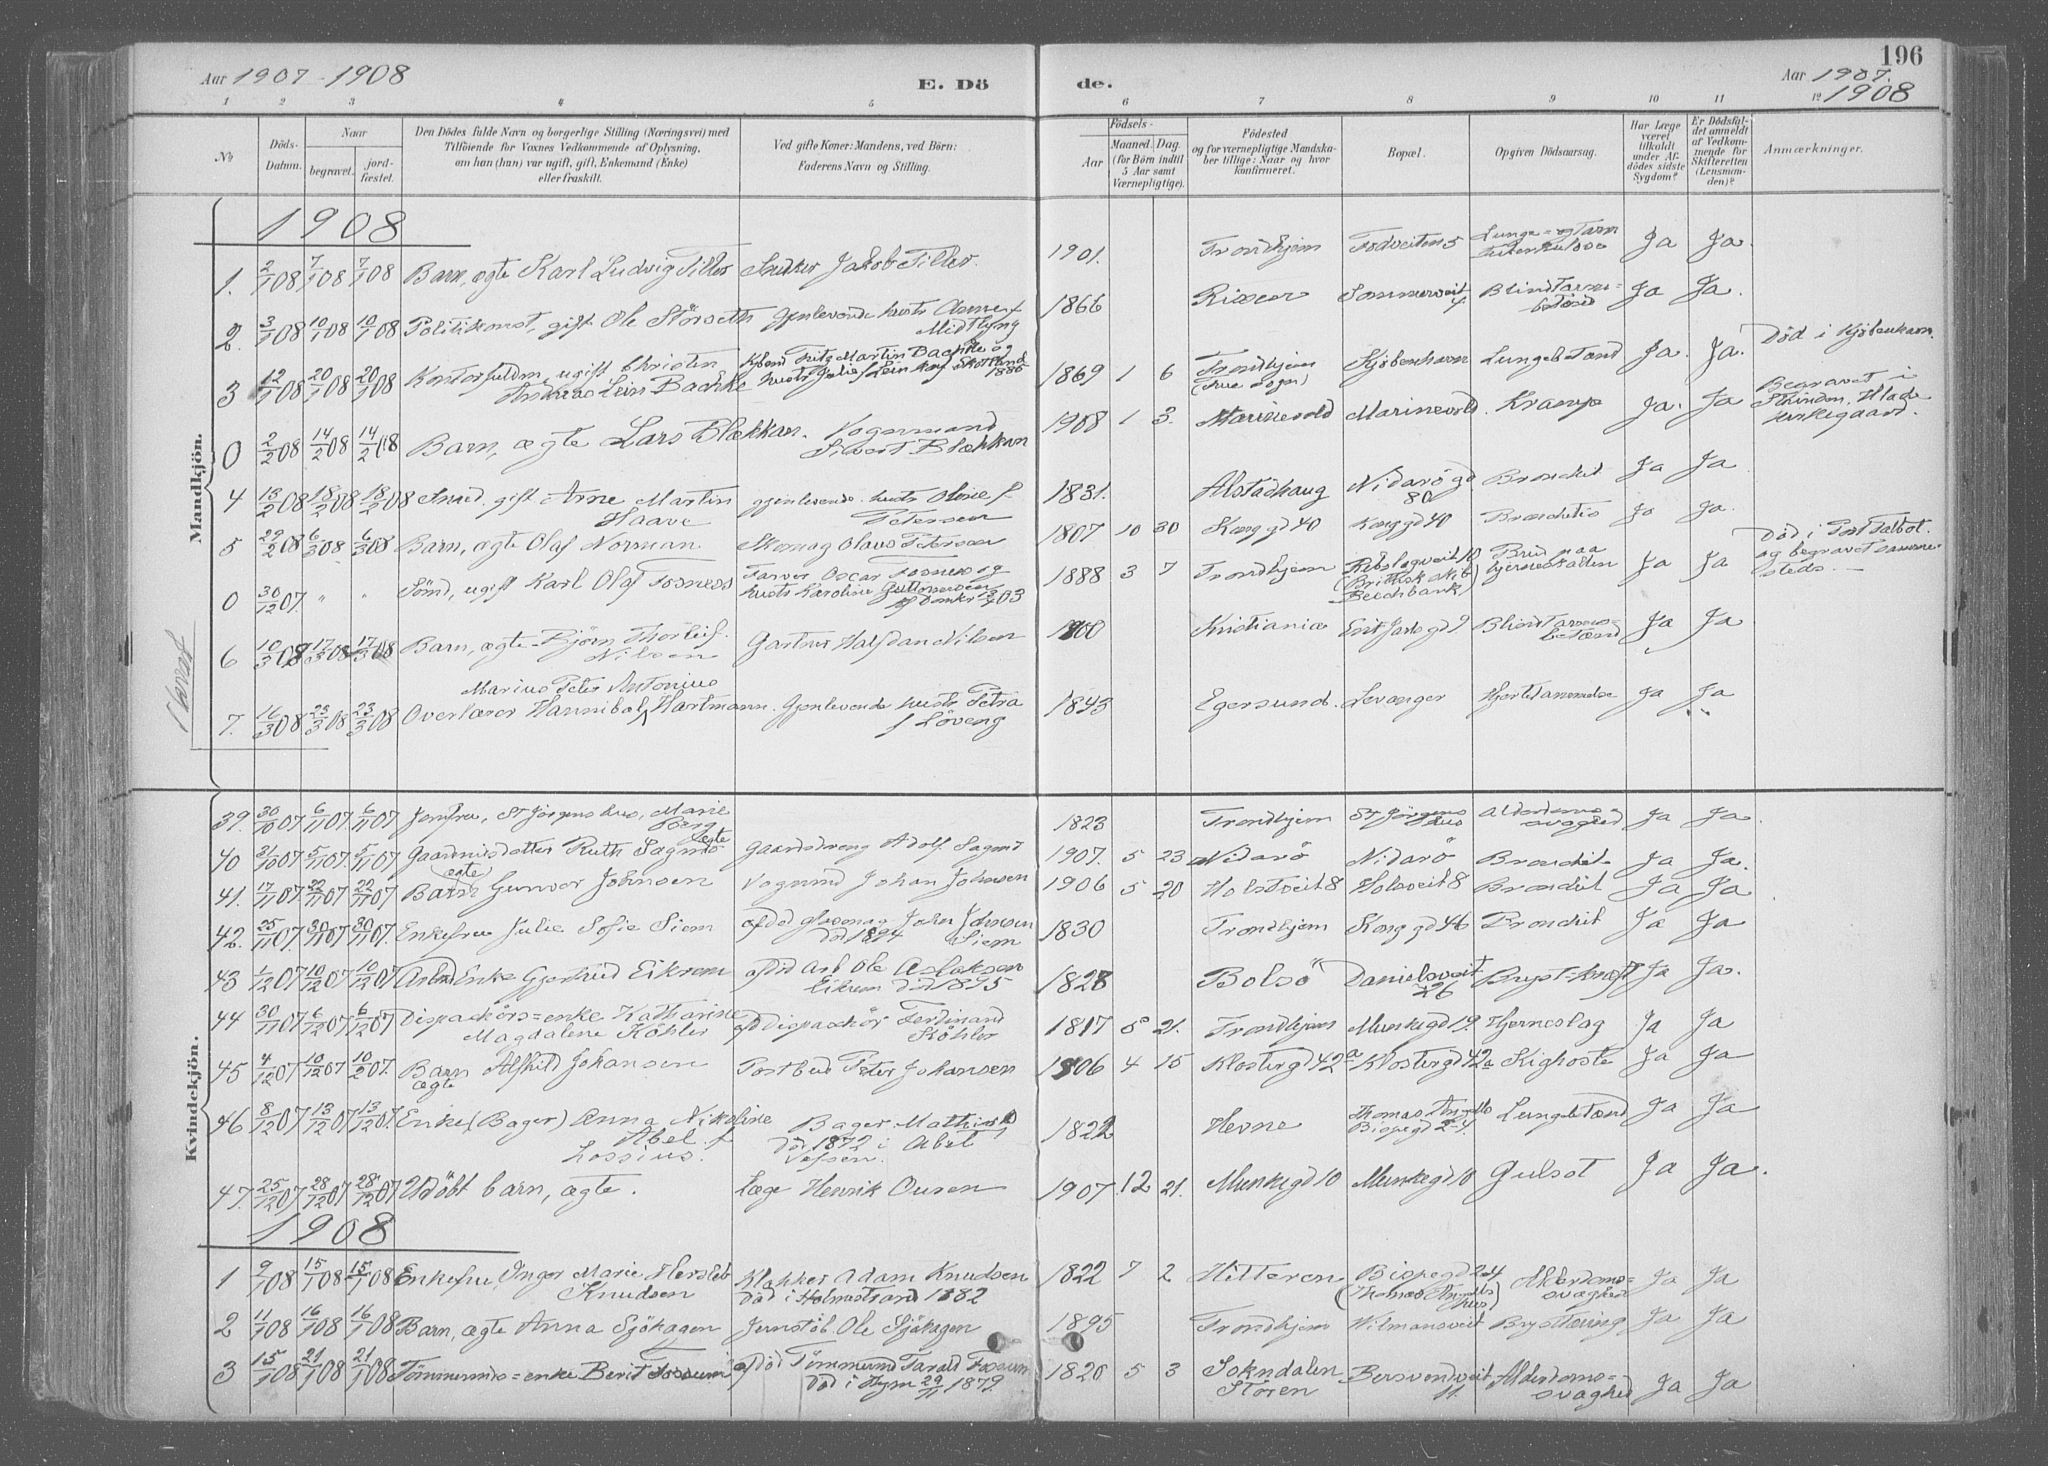 Aar 1907-1908
E. Dö
de.
196
Aar 1907.
1908
1 2 3 4 5 6 7 8 9 10 11 12
No
Döds-Datum.
Naar
begravet.
jord-fæstet.
Den Dödes fulde Navn og borgerlige Stilling (Næringsvei) med
Tilföiende for Voxnes Vedkommende af Oplysning,
om han (hun) var ugift, gift, Enkemand (Enke)
eller fraskilt.
Ved gifte Koner: Mandens, ved Börn:
Faderens Navn og Stilling.
Födsels-
Aar
Maaned. Dag.
(for Börn indtil
5 Aar samt
Værnepligtige).
Födested
og for værnepligtige Mandska-
ber tillige: Naar og hvor
konfirmeret.
Bopæl.
Opgiven Dödsaarsag.
Har Læge
været
tilkaldt
under Af-
dödes sidste
Sygdom?
Er Dödsfal-
det anmeldt
af Vedkom-
mende for
Skifteretten
(Lensman-
den)?
Anmærkninger.
Mandkjön.
1908
1. 2/1 08 7/1 08 7/1 08 Barn, ægte Karl Ludvig Tiller Snedker Jakob Tiller 1901. Trondhjem Fodveiten 5 Lunge- og Tarm tuberkulose Ja Ja.
2. 3/1 08 10/1 08 10/1 08 Politikonst, gift Ole Störseth Gjenlevende hustr Anne f Midtlyng 1866 Rissen Sommerveit 4 Blindtarms-betænd Ja Ja.
3 12/1 08 20/1 08 20/1 08 Kontorfuldm, ugift Christen Andreas Lein Bachke Kjbmd Fritz Martin Bachke og hustr Julie f Lein 1869 1 6 Trondhjem (Frue Sogn) Kjöbenhavn Lungebetænd Ja. Ja. Död i Kjöbenhavn.
0 2/2 08 14/2 08 14/2 08 Barn, ægte Lars Blækkan. Vognmand Sivert Blækkan 1908 1 3. Marinevold Marinevold. Krampe Ja. Ja Begravet i Strinden, Hlade kirkegaard.
4 13/2 08 18/2 08 18/2 08 Smed, gift Arne Martin Haave gjenlevende hustr Oline f Petersen 1831. Alstadhaug Nidarö gd 80 Brondkit Ja Ja
5 29/2 08 6/3 08 6/3 08 Barn, ægte Olaf Norman. Skomag Olaus Petersen 1807 10 30 Kong gd 40 Kong gd 40 Ja Ja.
0 30/12 07. " " Sömd, ugift Karl Olaf Fosness Farver Oscar Fosness og hustr Karoline 1888 3 7 Trondhjem Rebslagveit 10 (Brittisk skib Beechbank) Brud paa hjerneskallen Ja Ja Död i Port Talbot. og begravet samme-steds.
6 10/3 08 17/3 08 17/3 08 Barn, ægte Björn Thorleif Nilsen Gartner Halfdan Nilsen 1900 Kristiania Erik Jarls gd 9 Blindtarms-betænd Ja Ja
Marius Peter Antonius
7. 16/3 08 23/3 08 23/3 08 Overlærer Hannibal Hartmann. Gjenlevende hustr Petra f Löveng 1843 Egersund. Levanger Hjertelammelse Ja Ja
Kvindekjön.
39. 30/10 07 6/11 07. 6/11 07 Jomfru, St Jörgens hus, Marie Berg 1823 Trondhjem St Jörgens hus Alderdoms-svaghed Ja Ja
40 31/10 07 5/11 07. 5/11 07 Gaardmdsdatter Ruth Sagmo ægte Gaardsdreng Adolf Sagmo 1907. 5 23 Nidarö Nidarö Brondkit. Ja Ja.
41. 17/11 07. 22/11 07 22/11 07 Barn ægte Gunvor Johnsen Vognmd Johan Johnsen 1906 5 20 Holstveit 8 Holsveit 8 Brondkit Ja Ja
42. 25/11 07. 30/11 07 30/11 07. Enkefru Julie Sofie Siem afdöd John Johnsen Siem död 1894 1830 Trondhjem Kong gd 46 Bronkit Ja Ja
43 1/12 07 10/12 07 10/12 07 Enke Gjertrud Eikrem afdöd Arb Ole Aslaksen Eikrem död 1875 1828 Bolsö Danielsveit 26 Bryst-kræft Ja Ja.
44 30/11 07 6/12 07 6/12 07 Dispachörs=enke Kathrine Magdalene Köhler afd Dispachör Ferdinand Köhler 1817 5 21. Trondhjem Munkegd 19. Hjerneslag Ja Ja
45 4/12 07 10/12 07 10/2 07. Barn ægte Alfhild Johansen Postbud Peter Johansen 1906 4 15 Klostergd 42a Klostergd 42a Kighoste Ja Ja
46 8/12 07 13/12 07 13/12 07. Enke (Bager) Anna Nikoline Abel f Lossius. Bager Mathias Abel Död 1872 i Vefsen. 1822 Hevne Thomas Angells Bispegd 2-4. Lungebetænd Ja Ja
47. 25/12 07 28/12 07 28/12 07 Udöbt barn, ægte. Læge Henrik Ousen 1907 12 21. Munkegd 10 Munkegd 10 Gulsot Ja Ja.
1908
1 9/1 08 15/1 08 15/1 08 Enkefru Inger Marie Hersleb Knudsen Klokker Adam Knudsen Död i Holmestrand 1882 1822 7 2 Hitteren Bispegd 2-4 (Thomas Angells hus) Alderdoms-svaghed Ja Ja
2 11/1 08 16/1 08 16/1 08 Barn, ægte Anna Sjöhagen Jernstöb. Ole Sjöhagen 1895 Trondhjem Wilmansveit Brysttæring Ja Ja
3 15/1 08 21/1 08 21/1 08 Tömmermds=enke Berit Fossum afdöd Tömmermd Tarald Fossum Död i Hjem 29/11 1879. 1820 5 3 Sokndalen Stören Bersvendveit 11. Alderdoms-svaghed Ja Ja